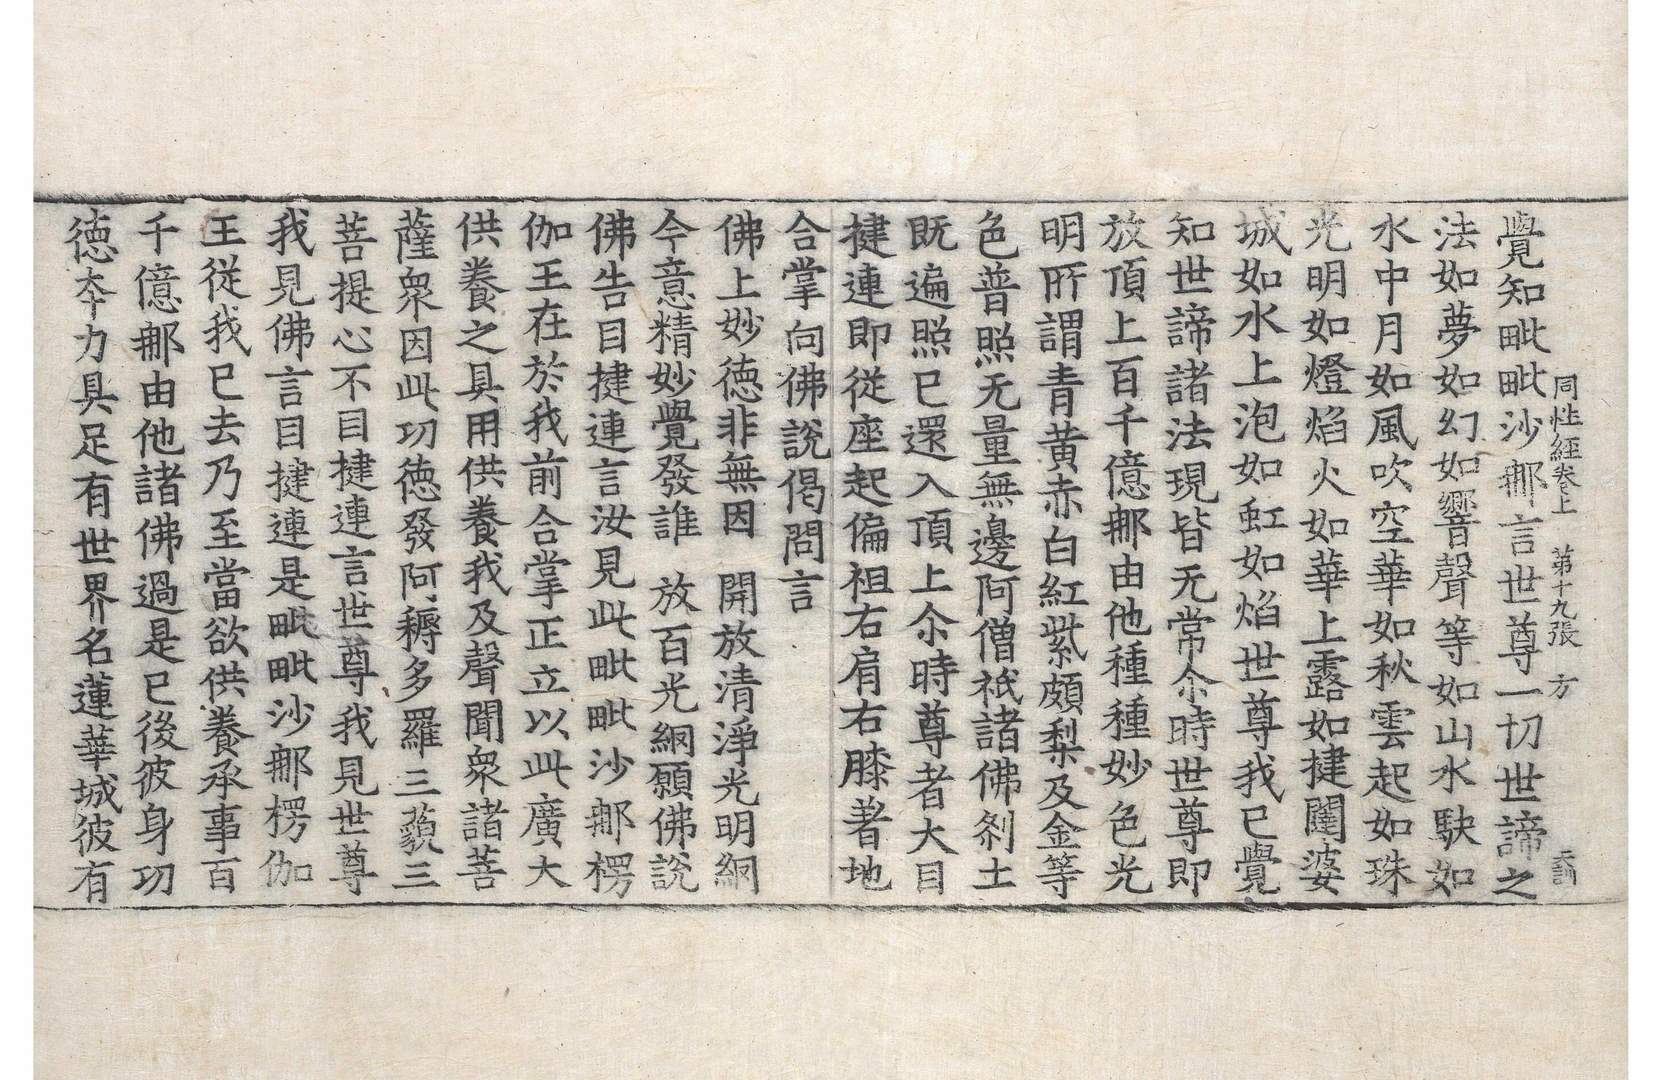 同性經卷上　第十九張　方
覺知毗毗沙郍言世尊一切世諦之
法如夢如幻如響聲等如山水駃如
水中月如風吹空華如秋雲起如珠
光明如燈焰火如華上露如揵闥婆
城如水上泡如虹如焰世尊我已覺
知世諦諸法現皆无常尒時世尊即
放頂上百千億郍由他種種妙色光
明所謂青黃赤白紅紫頗梨及金等
色普照无量無邊阿僧祇諸佛剎土
既遍照已還入頂上尒時尊者大目
揵連即從座起偏袒右肩右膝著地
合掌向佛說偈問言
佛上妙德非無因　開放清淨光明網
今意精妙覺發誰　放百光網願佛說
佛告目揵連言汝見此毗毗沙郍楞
伽王在於我前合掌正立以此廣大
供養之具用供養我及聲聞衆諸菩
薩衆因此功德發阿耨多羅三藐三
菩提心不目揵連言世尊我見世尊
我見佛言目揵連是毗毗沙郍楞伽
王從我已去乃至當欲供養承事百
千億郍由他諸佛過是已後彼身功
德夲力具足有世界名蓮華城彼有